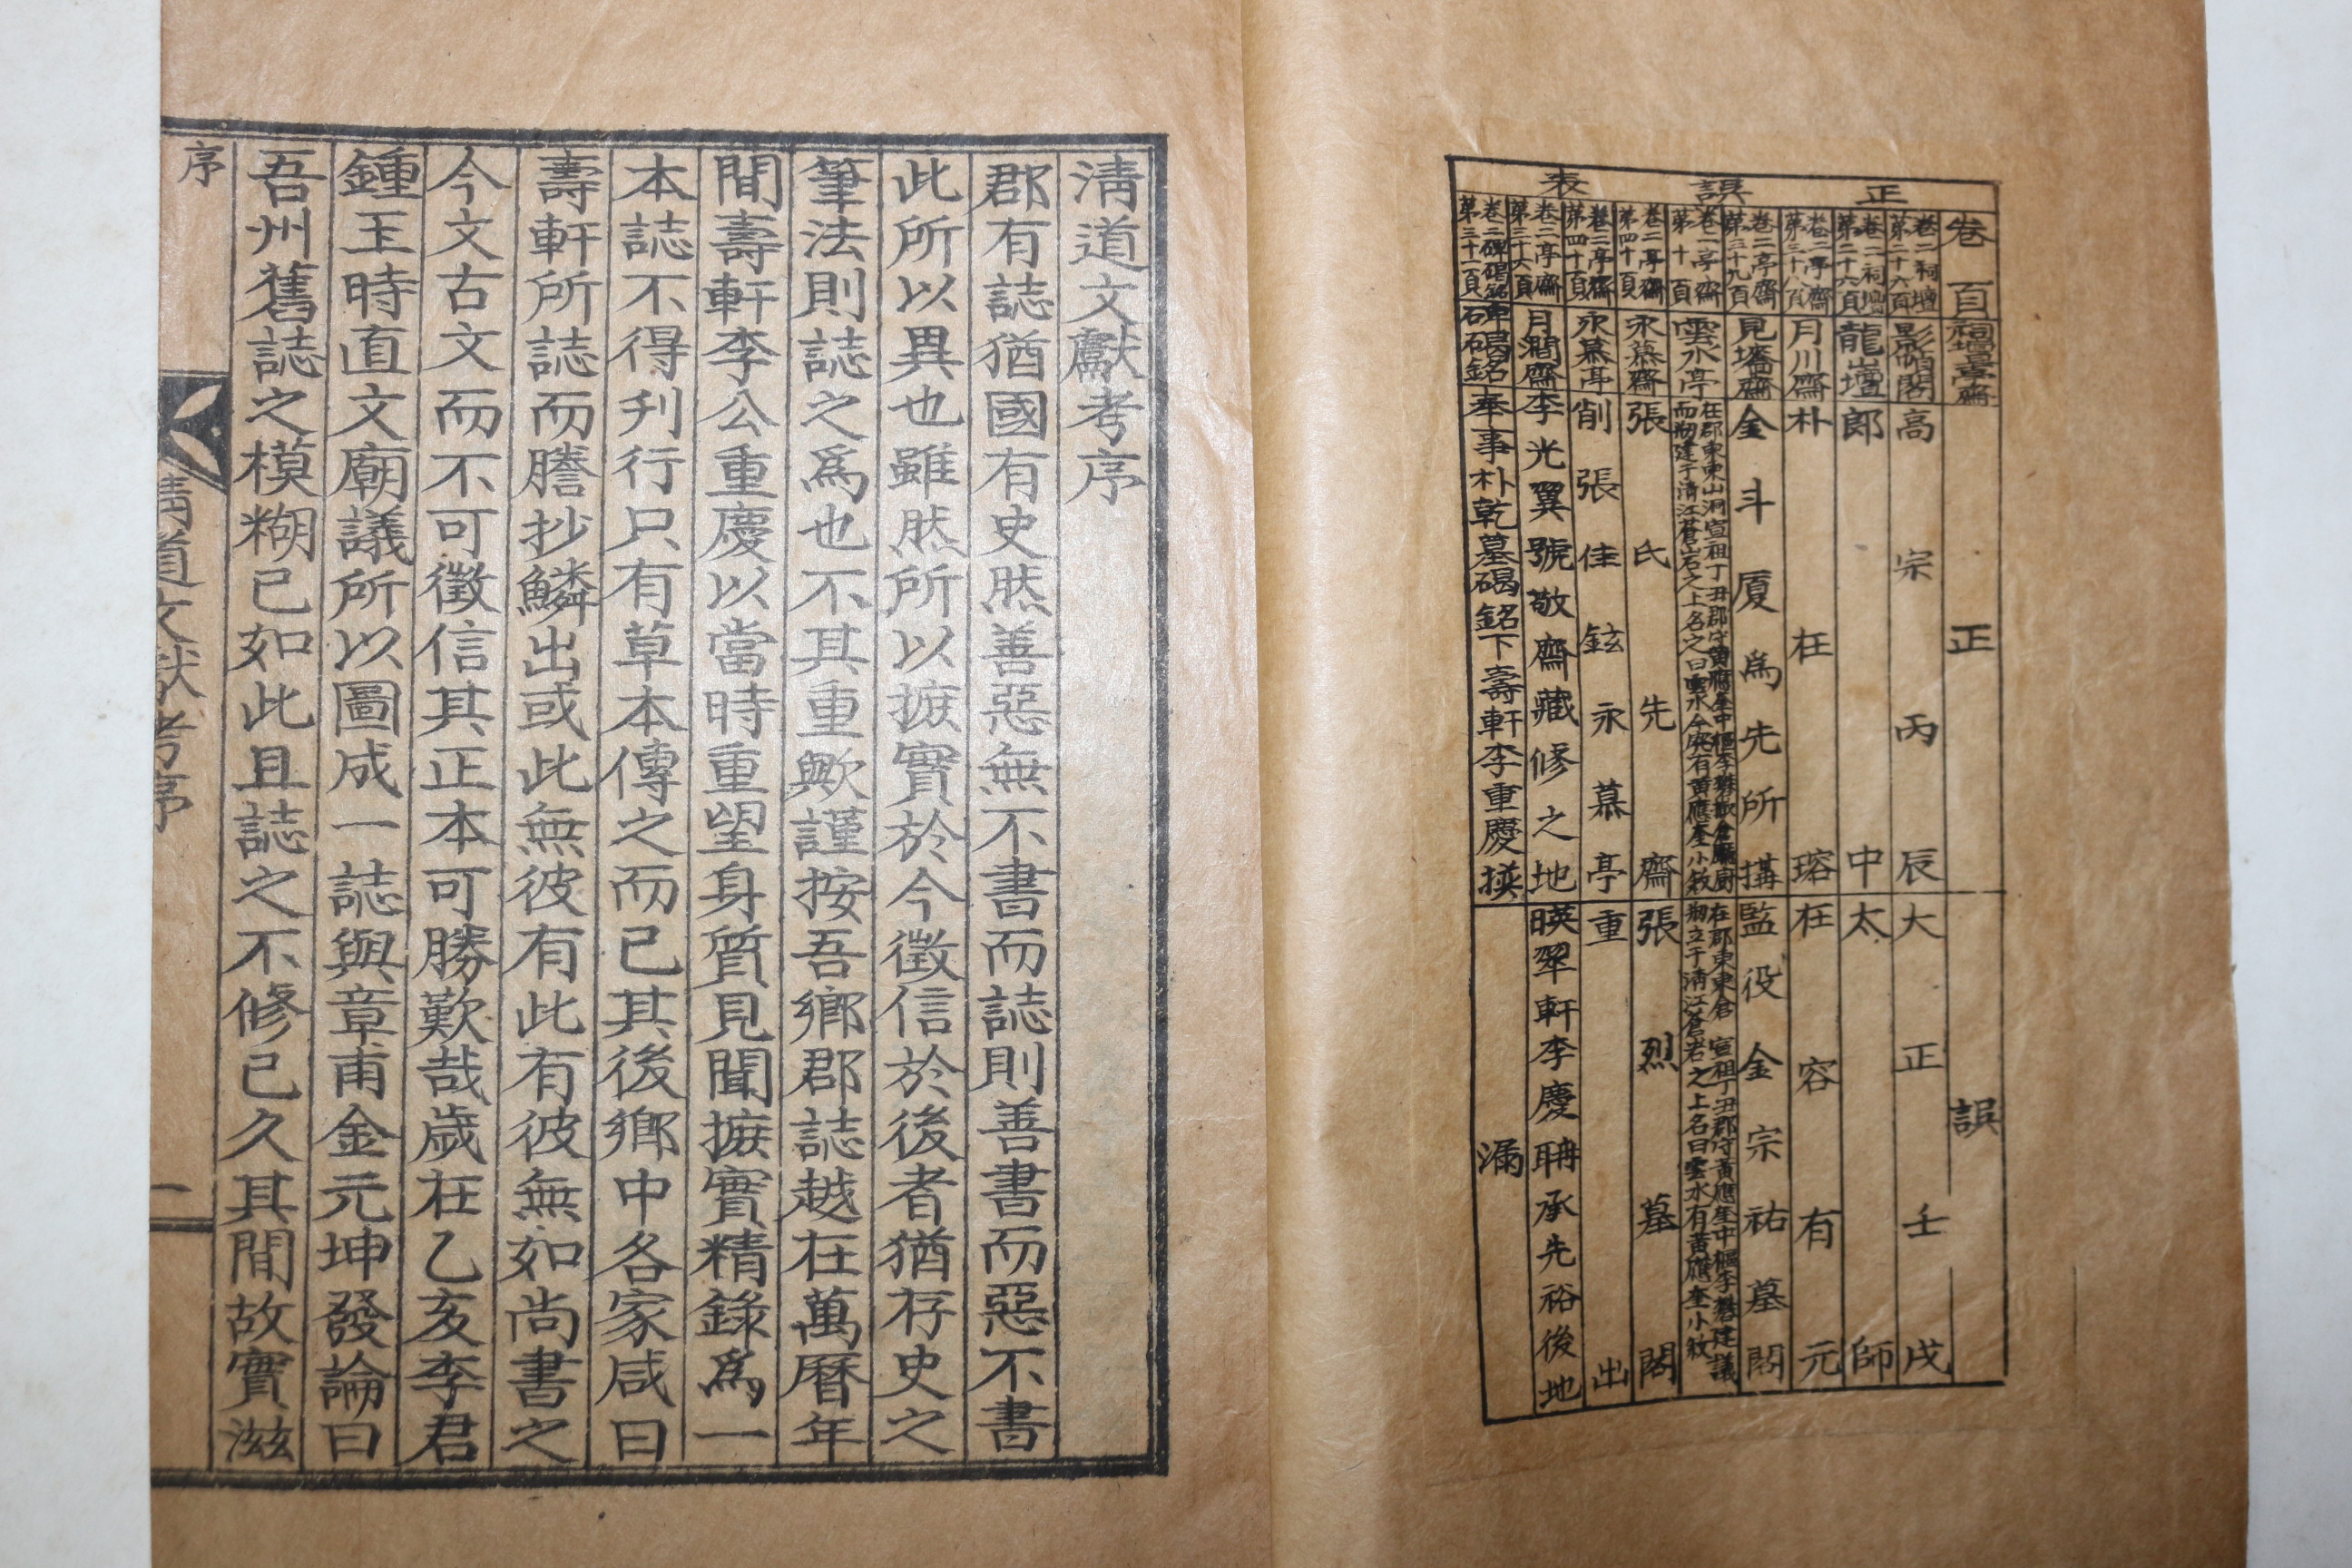 正誤表
卷頁 祠壇臺齋 正 誤
卷二祠壇第二十六頁 影幀閣 高宗丙辰 大正壬戌
卷二祠壇第二十六頁 龍壇 郎中 太師
卷二亭齋第三十八頁 月川齋 朴在瑢 在容有元
卷二亭齋第三十九頁 見墦齋 金斗厦爲先所搆 監役金宗祐墓閣
卷一亭齋第十頁 雲水亭 在郡東東山洞宣祖丁丑郡守黃應奎中樞李 而刱建于淸江蒼岩之上名之曰雲水今廢有黃應奎小敘 在郡東東倉 宣祖丁丑郡守黃應奎中樞李 建議 刱立于淸江蒼岩之上名曰雲水有黃應奎小敘
卷二亭齋第四十頁 永慕齋 張氏先齋 張烈墓閣
卷二亭齋第四十頁 永慕亭 削張佳鉉永慕亭 重出
卷二亭齋第三十六頁 月澗齋 李光翼號敬齋藏修之地 暎翠軒李慶聃承先裕後地
卷二碑碣銘第三十一頁 石碣銘 奉事朴乾墓碣銘下壽軒李重慶撰 漏
淸道文獻考序
郡有誌猶國有史然善惡無不書而誌則善書而惡不書
此所以異也雖然所以摭實於今徵信於後者猶存史之
筆法則誌之爲也不其重歟謹按吾鄕郡誌越在萬曆年
間壽軒李公重慶以當時重望身質見聞摭實精錄爲一
本誌不得刋行只有草本傳之而已其後鄕中各家咸曰
壽軒所誌而謄抄鱗出或此無彼有此有彼無如尚書之
今文古文而不可徵信其正本可勝歎哉歲在乙亥李君
鍾玉時直文廟議所以圖成一誌與章甫金元坤發論曰
吾州舊誌之模糊已如此且誌之不修已久其間故實滋
序
淸道文獻考序
一